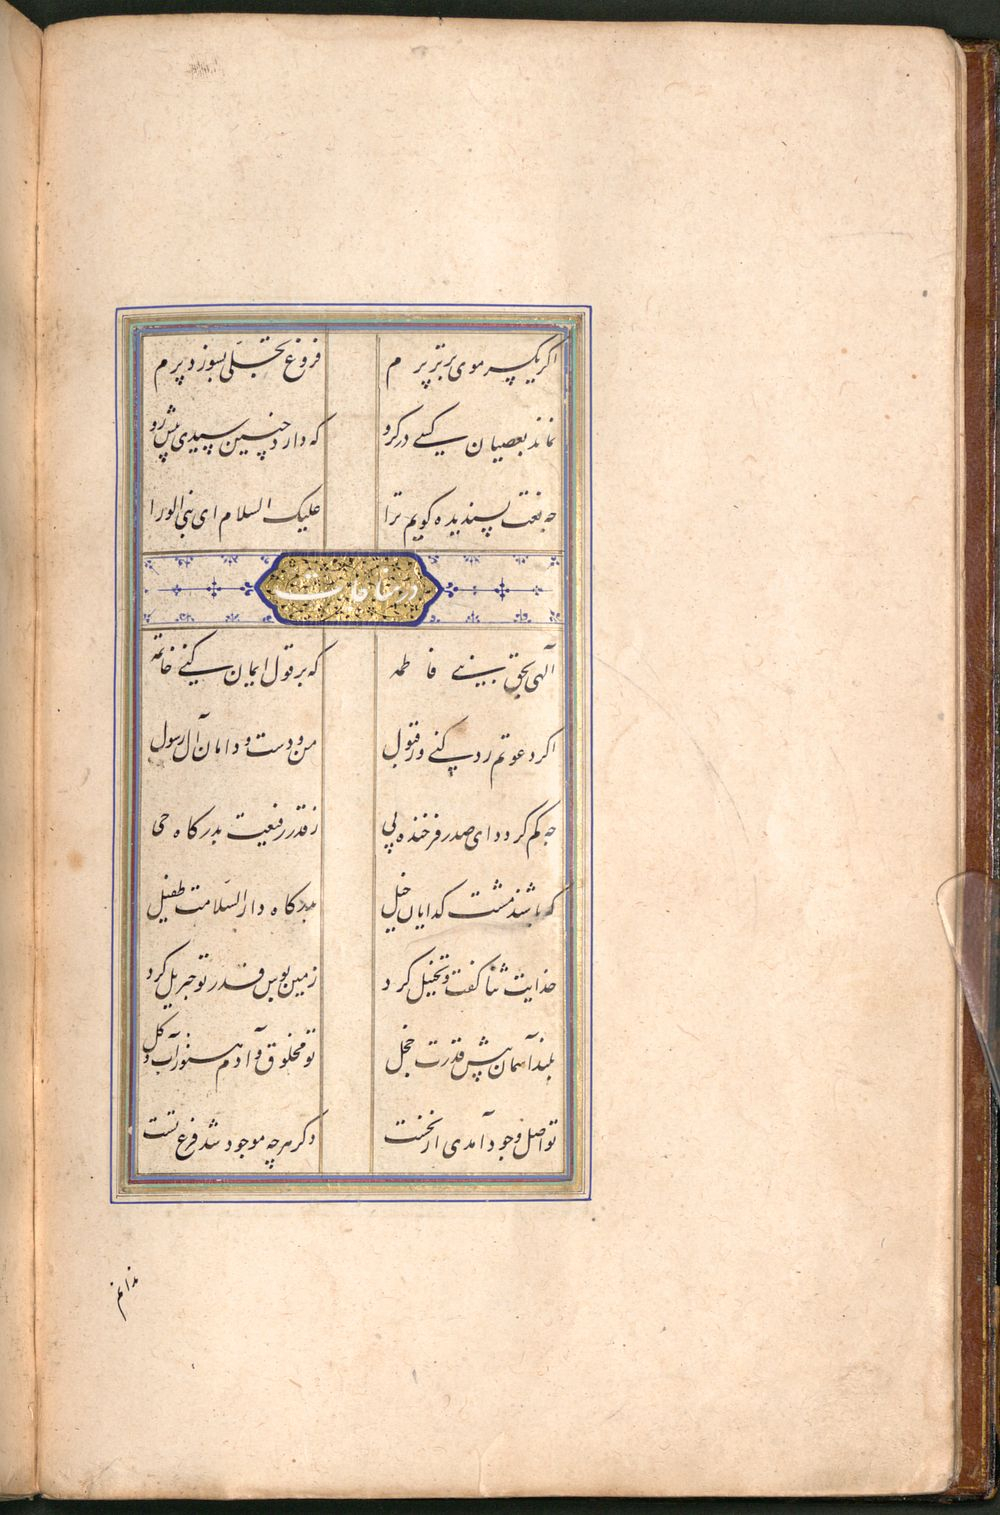 اکر یک سر موی برتر پرم فروغ تجلی بسوزد پرم
نماند بعصیان کسی در کرو که دارد چنین سیدی پیش رو
چه نعت پسندیده کویم ترا علیک السلام ای نبی الورا
در مناجات
الهی بحق بنی فاطمه که بر قول ایمان کنی خاتمه
اکر دعوتم رد کنی ور قبول من و دست و دامان آل رسول
چه کم کردد ای صدر فرخنده پی ز قدر رفیعت بدرکاه حی
که باشند مشت کدایان خیل بدرکاه دار السلامت طفیل
خدایت ثنا کفت و تبجیل کرد زمین بوس قدر تو جبریل کرد
بلند آسمان پیش قدرت خجل تو مخلوق و آدم هنوز آب و کل
تو اصل وجود آمدی از نخست دکر هرچه موجود شد فرع تست
ندانم